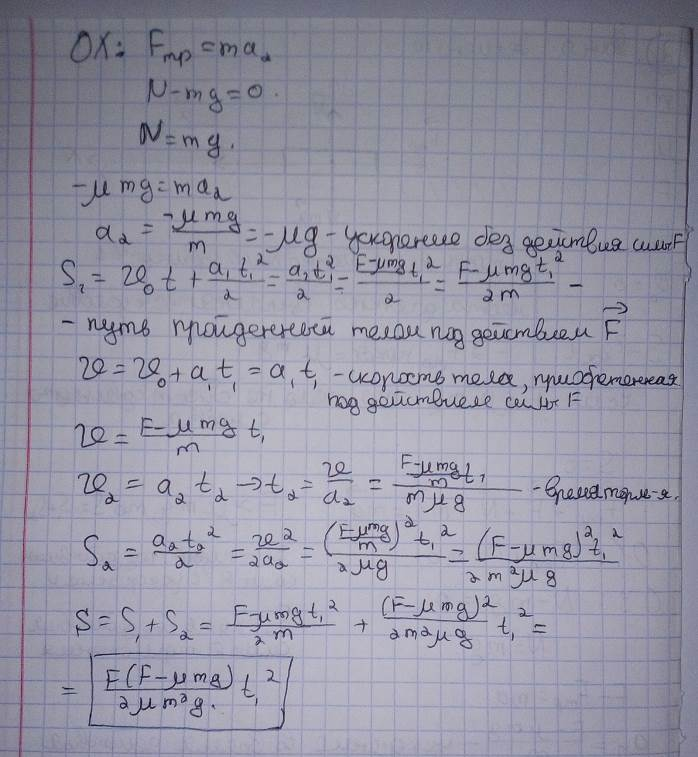 OX: Fтр = ma₂
N - mg = 0.
N = mg.
-μmg = ma₂
a₂ = -μmg/m = -μg - ускорение без действия силы F
S₁ = υ₀t + a₁t₁²/2 = a₁t₁²/2 = F-μmg t₁²/2 = F-μmg t₁²/2m -
- путь пройденный телом под действием F⃗
υ = υ₀ + a₁t₁ = a₁t₁ - скорость тела, приобретенная
под действием силы F
υ = F-μmg/m t₁
υ₂ = a₂t₂ → t₂ = υ/a₂ = (F-μmg/m t₁)/mμg - время торм-я.
S₂ = a₂t₂²/2 = υ²/2a₂ = (F-μmg/m)² t₁²/2μg = (F-μmg)² t₁²/2m²μg
S = S₁ + S₂ = F-μmg t₁²/2m + (F-μmg)²/2m²μg t₁² =
= F(F-μmg)/2μm²g. t₁²